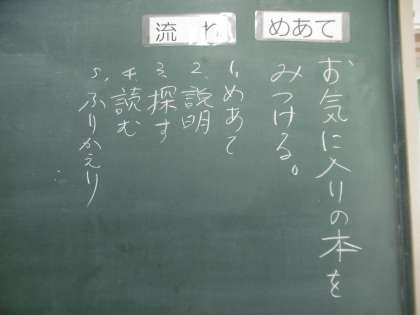 めあて
お気に入りの本を
みつける。
流れ
1,めあて
2,説明
3,探す
4,読む
5,ふりかえり